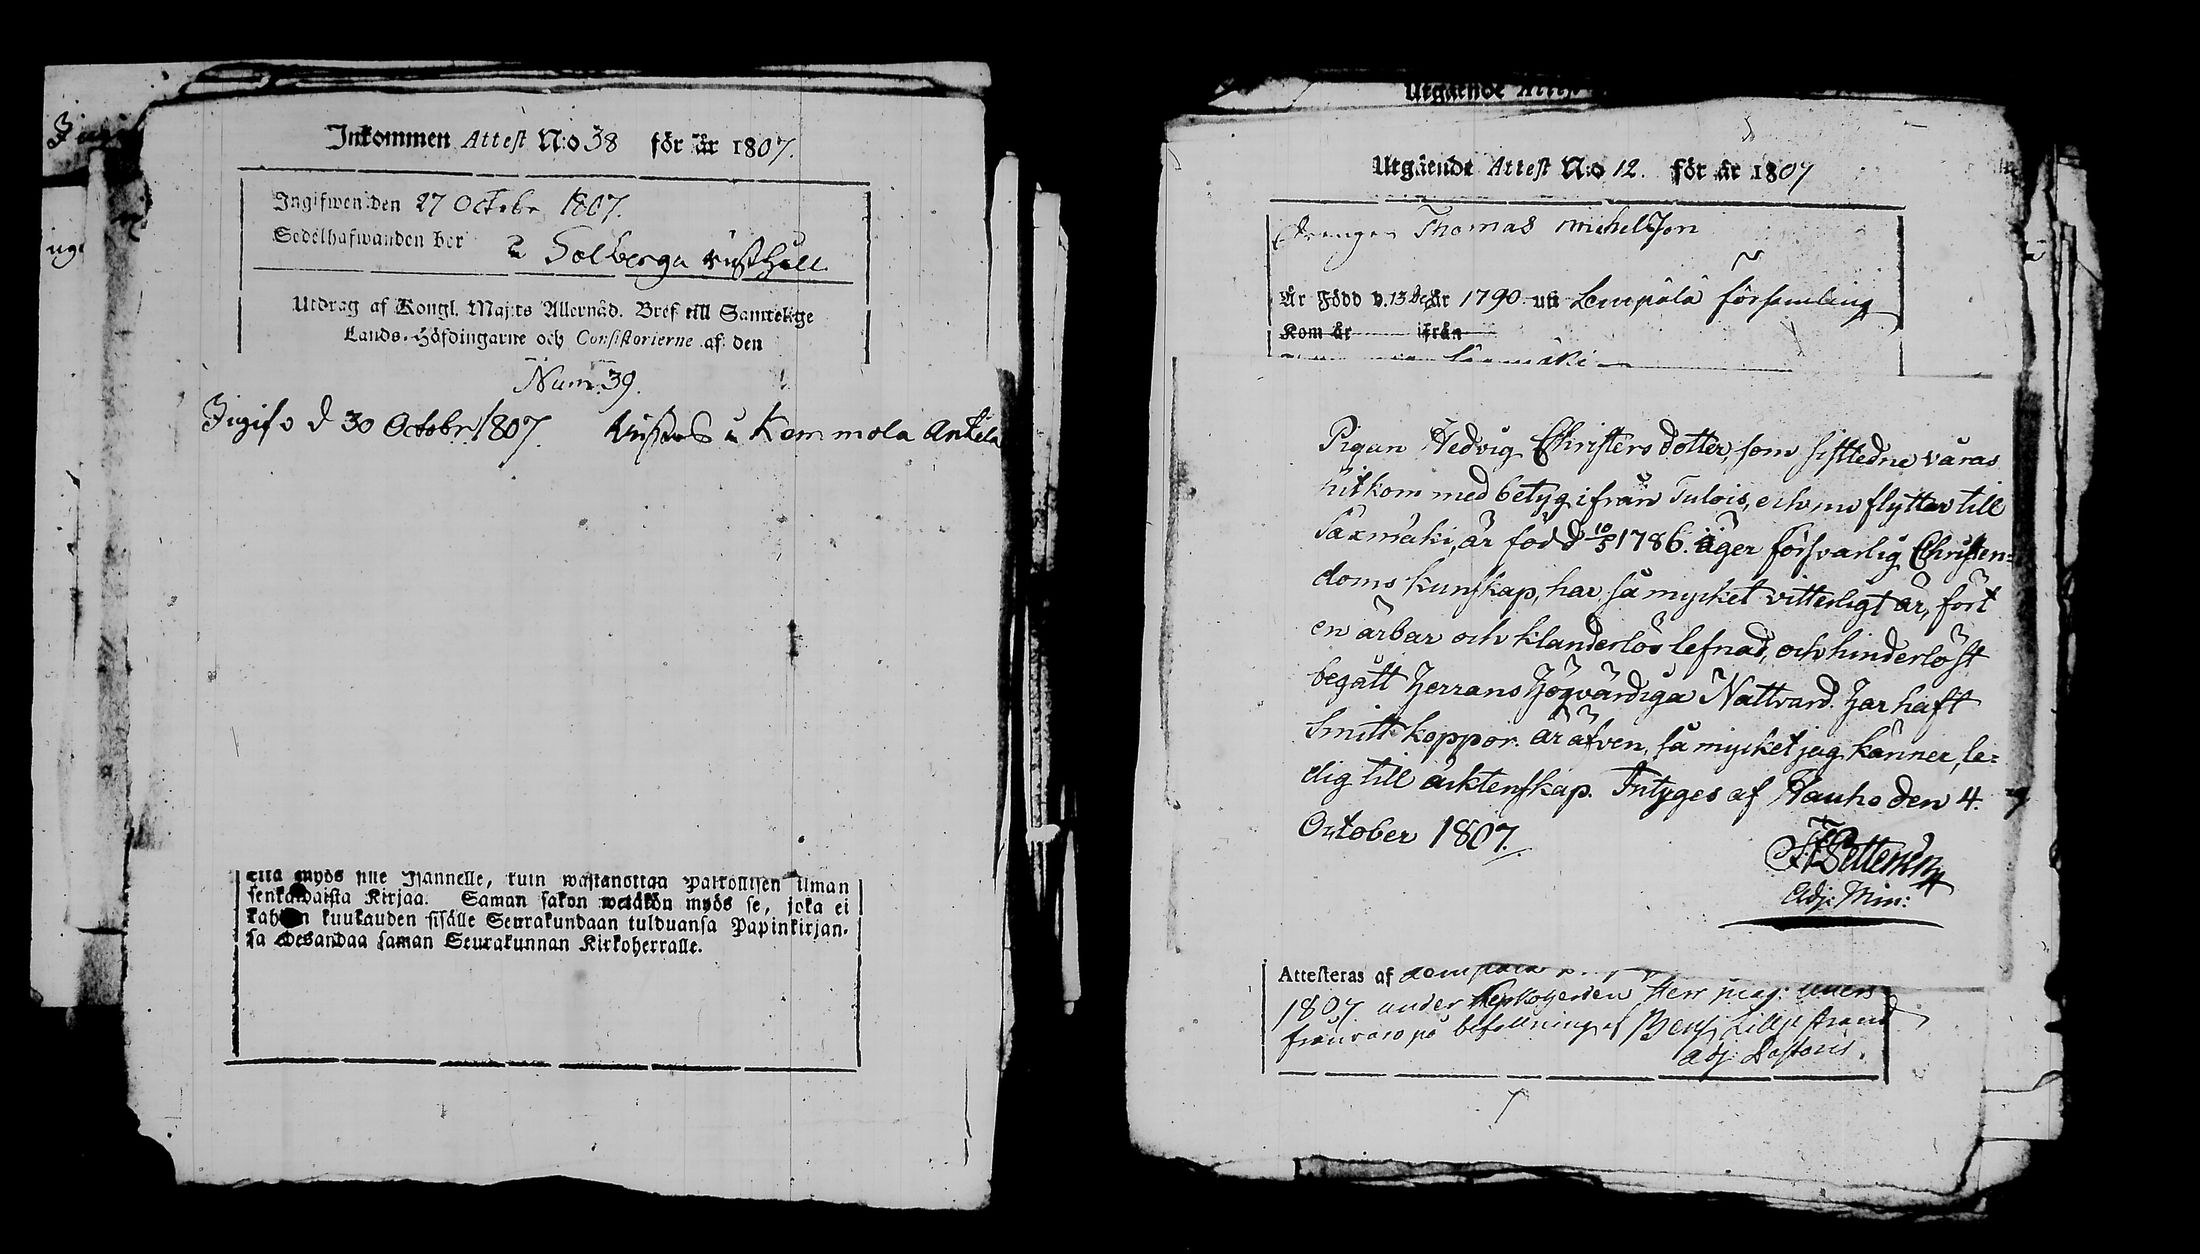 Inkommen Attest N:o 38 för år 1807.
Ingifwen den 27 Octobr 1807.
Sedelhafwanden bor å Solberga rusthåll
Utdrag af Kongl. Maj:ts Allernåd. Bref till Samtelige
Lands-Höfdingarne och Consistorierne af den
Num. 39.
d 30 Octobr 1807. Kemmola Antila
että myös sille Isännelle, kuin wastanottaa Palkollisen ilman
senkaldaista Kirjaa. Saman sakon wetäkön myös se, joka ei
kahden kuukauden sisälle Seurakundaan tulduansa Papinkirjan-
sa edesandaa saman Seurakunnan Kirkoherralle.
Utgående Attest
Utgående Attest N:o 12. för år 1807
Drengen Thomas Michelsson
Är Född d. 13 år 1790 uti Lempälä församling
Kom år ifrån
Pigan Hedvig Christersdotter, som sistledne våras
hitkom med betyg ifrån Tulois, och nu flyttar till
Säxmäki, är född 10/5 1786. äger försvarlig Christen=
doms kunskap, har så mycket vitterligt är, fört
en ärbar och klanderlös lefnad, och hinderlöst
begått Herrans Högvärdiga Nattvard. Har haft
Smitt koppor. är äfven, så mycket jag känner, le=
dig till äktenskap. Intyges af Hauho den 4.
October 1807.
Adj: Min:
Attesteras af
1807 under Kyrkoherden Herr Mag:
frånvaro på befallning af Benj Lilljestrand
Adj: Pastoris.